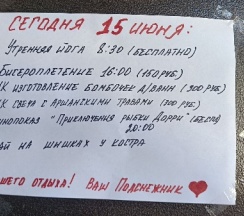 СЕГОДНЯ 15 ИЮНЯ:
УТРЕННЯЯ ЙОГА 8:30 (БЕСПЛАТНО)
БИСЕРОПЛЕТЕНИЕ 16:00 (150 РУБ)
К ИЗГОТОВЛЕНИЕ БОМБОЧЕК Д/ВАНН (300 РУБ)
К СВЕЧА С АРШАНСКИМИ ТРАВАМИ (200 РУБ)
ИНОПОКАЗ "ПРИКЛЮЧЕНИЯ РЫБКИ ДОРРИ" (БЕСПЛ)
20:00
АЙ НА ШИШКАХ У КОСТРА
ШЕГО ОТДЫХА! ВАШ ПОДСНЕЖНИК